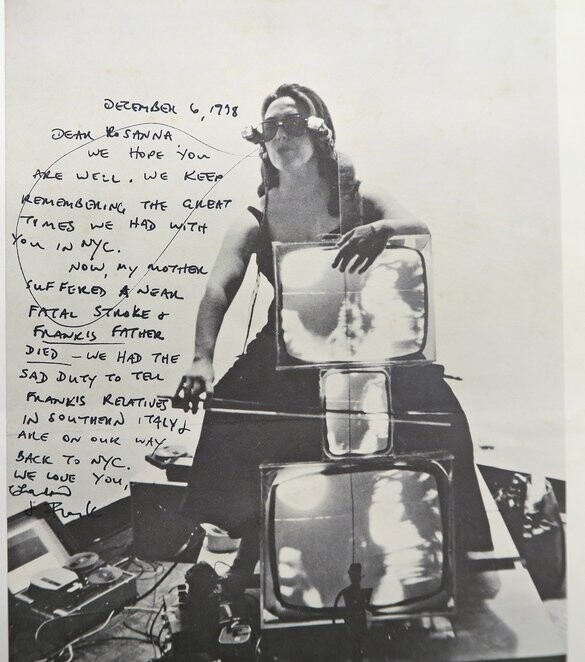 DECEMBER 6, 1978
DEAR ROSANNA
WE HOPE YOU
ARE WELL. WE KEEP
REMEMBERING THE GREAT
TIMES WE HAD WITH
YOU IN NYC.
NOW, MY MOTHER
SUFFERED A NEAR
FATAL STROKE &
FRANKIS FATHER
DIED — WE HAD THE
SAD DUTY TO TELL
FRANKIS RELATIVES
IN SOUTHERN ITALY &
ARE ON OUR WAY
BACK TO NYC.
WE LOVE YOU,
& Frank